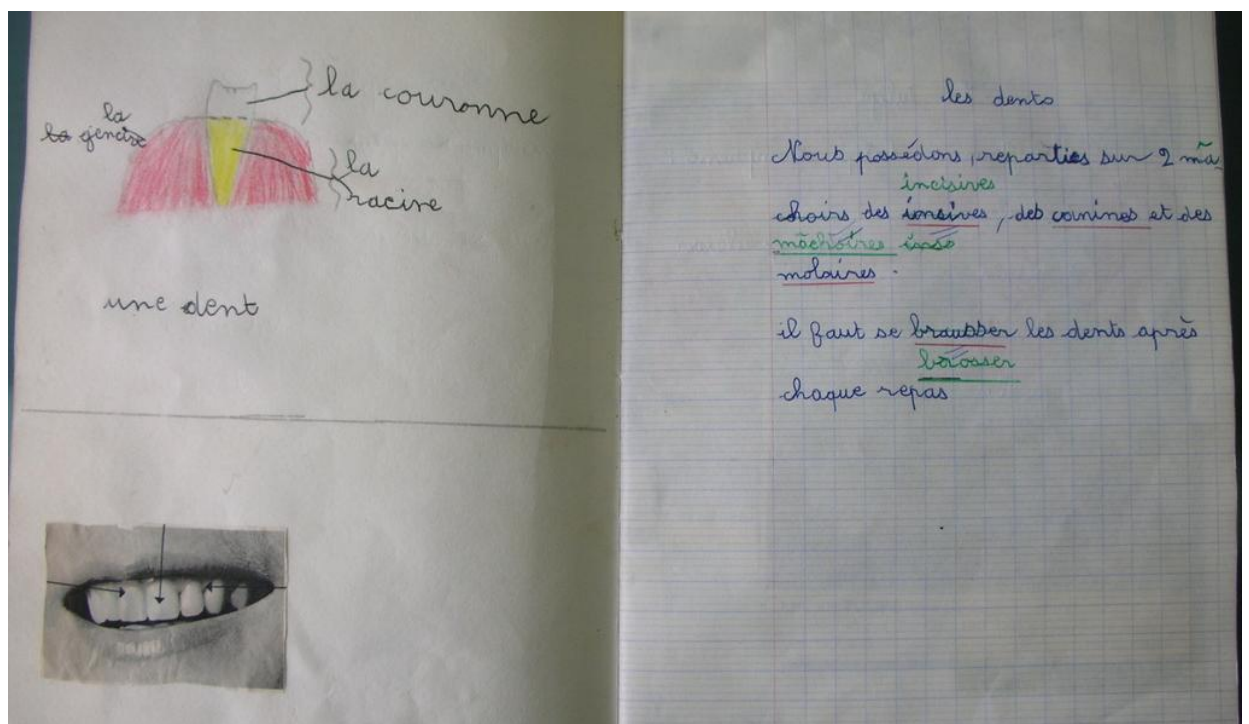 la couronne
la
la gencive
la
racine
une dent
les dents
Nous possédons, reparties sur 2 mâ
incisives
choirs des insives, des canines et des
mâchoires inso
molaires.
il faut se braubser les dents après
brosser
chaque repas